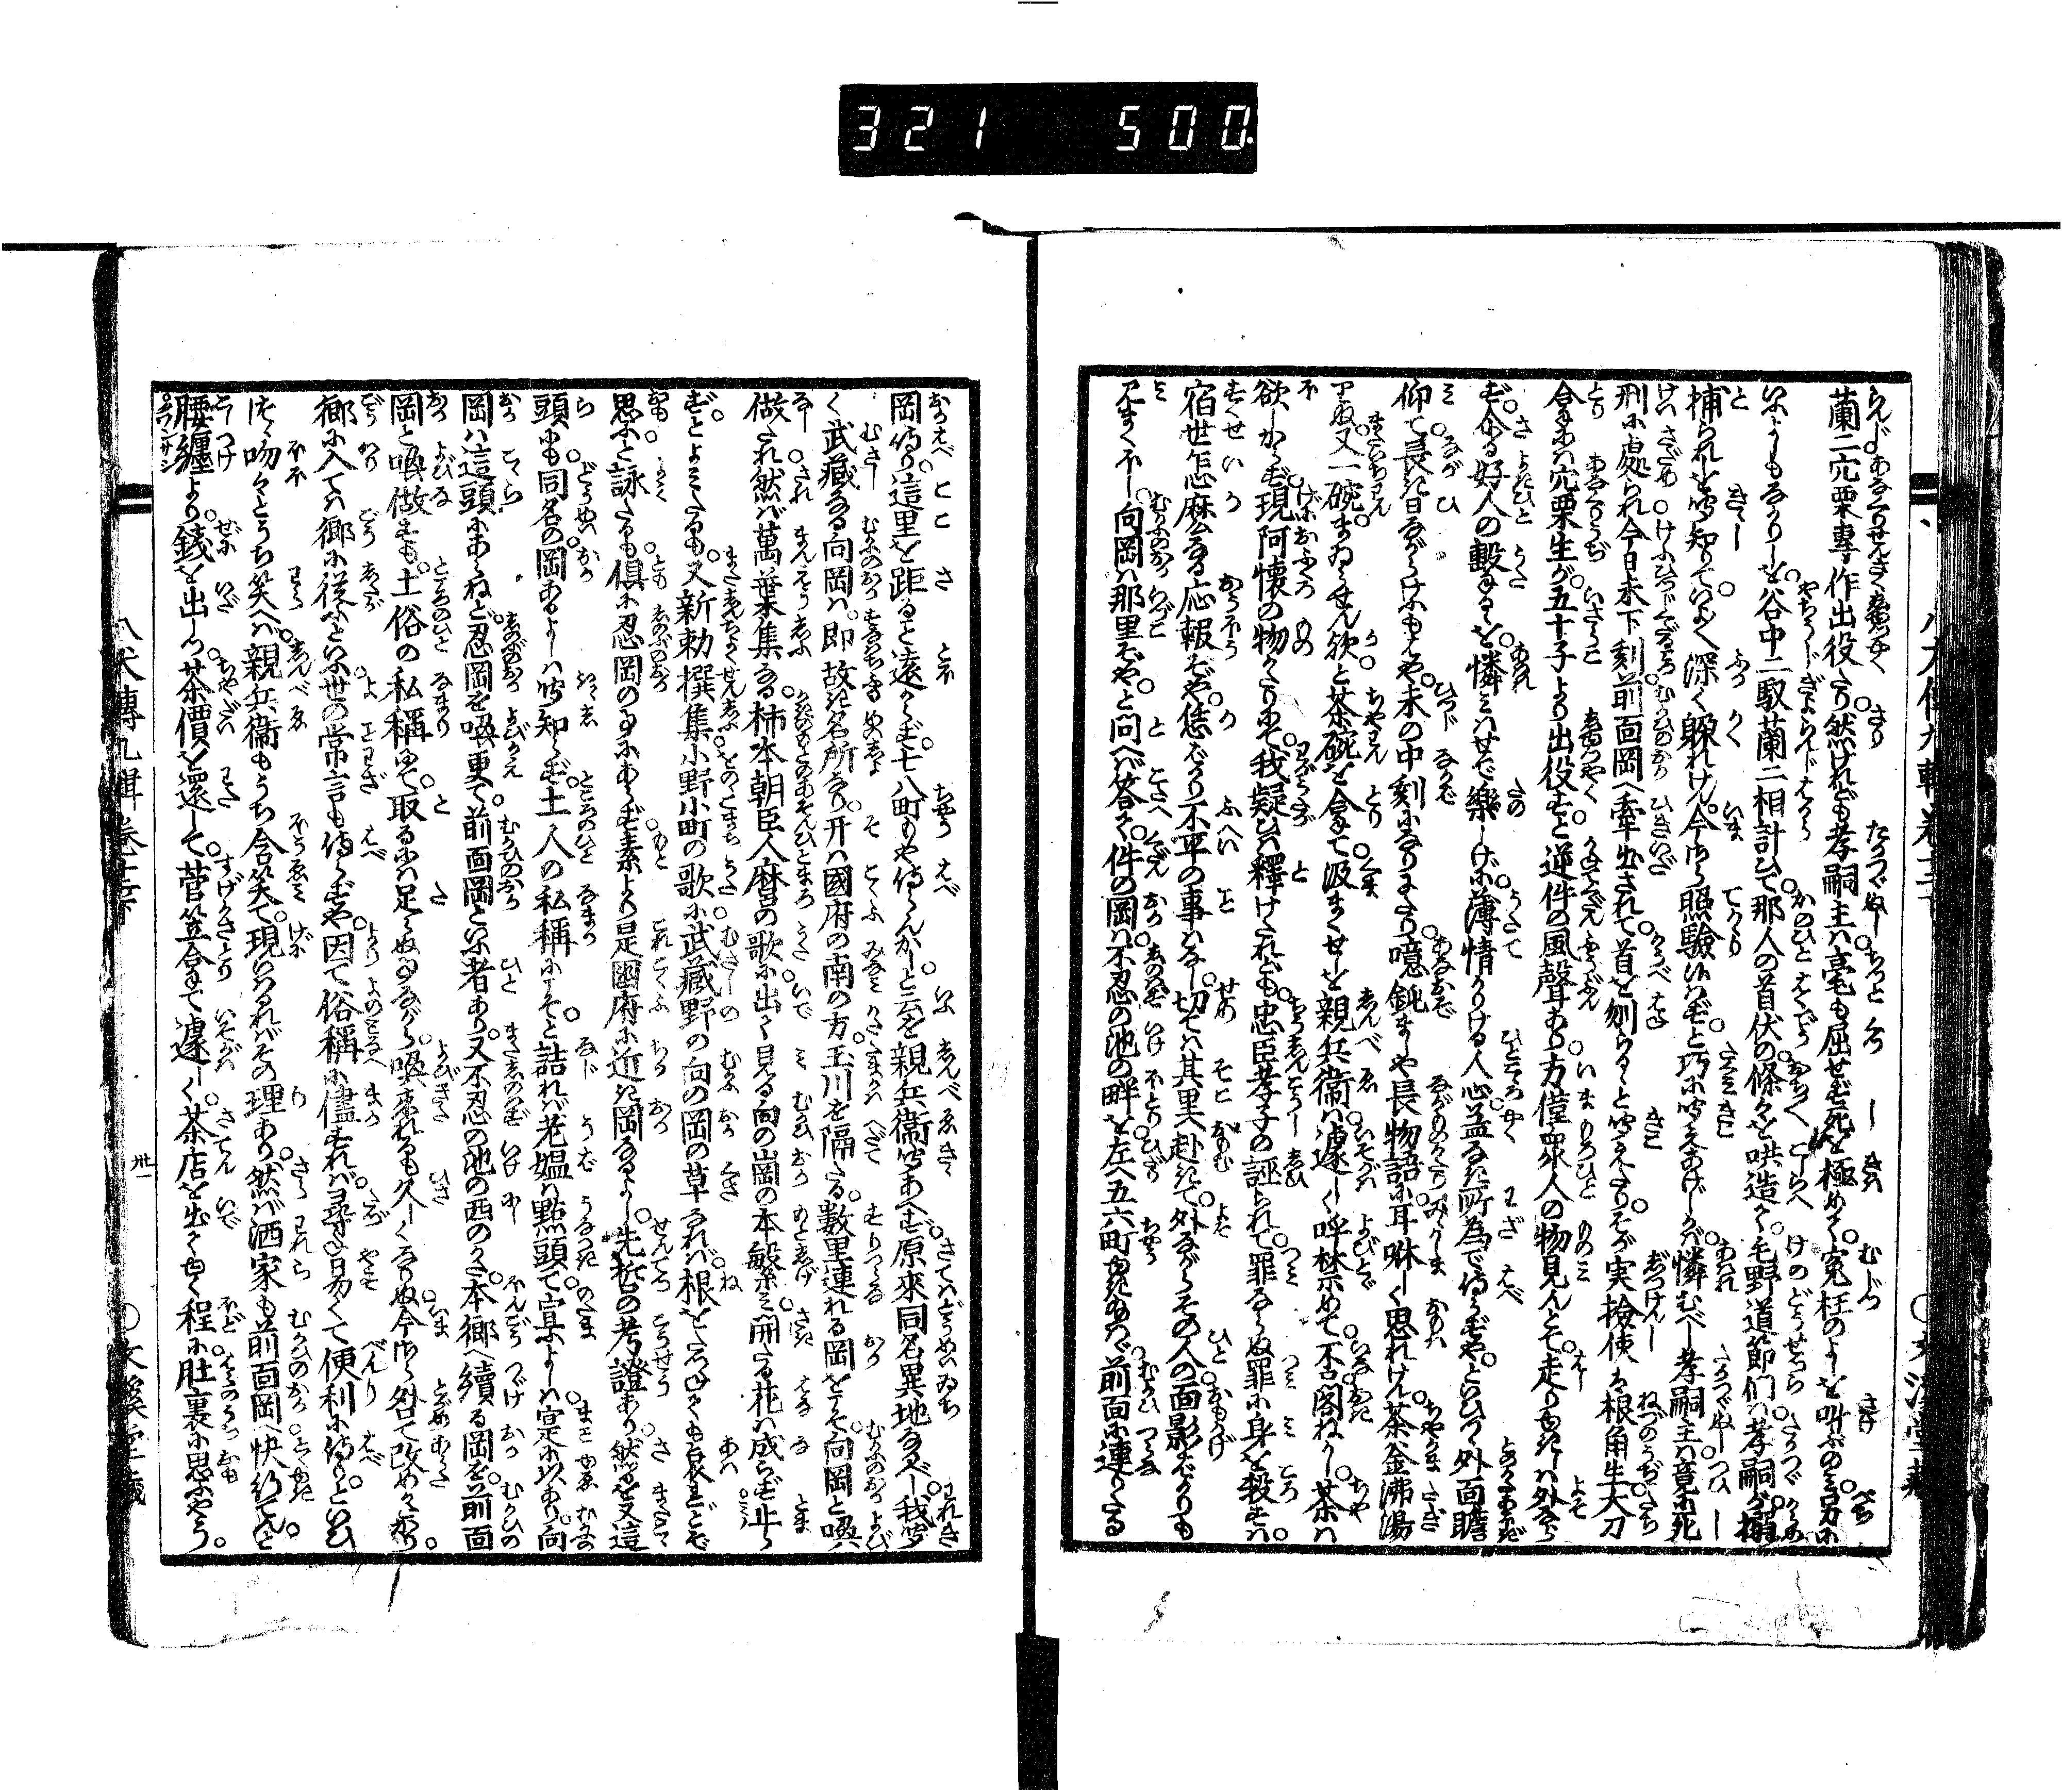 321 500
蘭二穴栗専作出役たり。然けれども孝嗣主は毫も屈せず死を極めて。冤枉のよしを叫ぶのみ。言別に
いふよしもなかりしを。谷中二馭蘭二相計ひて。那人の首伏の條々を哄造て。毛野道節們は。孝嗣が搦
捕られしを聞知りて。いよゝ深く躱れけん。今に照驗いはずと巧に聞えあげしかば。憐むべし孝嗣主は竟に死
刑に處られ今日未下刻。前面岡へ牽出されて。首を刎らるゝと聞えたり。そが実檢使は根角生大刀
合には穴栗生が。五十子より出役すと逆件の風聲あり。方僅衆人の物見んとて。走り出しは外なら
ず。介る好人の轂るゝを。憐みはせで樂しげに。薄情かりける人心。益なき所為で侍らずや。といひつゝ外面瞻
仰て。長き日ながらけふもはや。未の中刻になりにたり。噫鈍ましや長物語に。耳咻しく思れけん。茶釜沸湯
りぬ。又一碗。まゐらせん欤と茶碗を拿て。汲まくせしを親兵衛は。遽しく呼禁めて。不閣ねかし。茶は
欲しからず。現阿懐の物がたりにて。我疑ひは釋けたれども。忠臣孝子の誣られて。罪ならぬ罪に身を殺すは。
宿世怎麼なる応報ぞや。恁ばかり不平の事はなし。切ては其里へ赴きて。外ながらその人の面影ばかりも
見まくほし。向岡は那里ぞや。と問へば答て。件の岡は。不忍の池の畔を左へ五六町ゆきぬれば。前面に連りたる
岡侍り。這里を距ると遠からず。七八町もや侍らんかし。と云を親兵衛聞あへず。原來同名異地なるべし。我聞
く武藏なる向岡は。即故き名所なり。开は國府の南の方。玉川を隔たる。數里連れる岡をこそ。向岡と喚
做たれ。然ば萬葉集なる。柿本朝臣人麿の歌に出て見る。向の岡の本繁に。開たる花は成らず止ら
ず。とよみたるも。又新勅撰集。小野小町の歌に。武藏野の向の岡の草なれば。根をたづねても哀とぞ
思ふ。と詠たるも。倶に忍岡の事にあらず。素より是國府に近き岡なるよし。先哲の考證あり。然るを又這
頭にも。同名の岡あるよしは聞知らず。土人の私稱にこそ。と詰れば老媼は點頭て。宣ふよしは。寔に以あり。向
岡は這頭にあらねど。忍岡を喚更て。前面岡といふ者あり。又不忍の池の西のかた。本郷へ續る岡を。前面
岡と喚做すも。土俗の私稱にて。取るには足らぬ事ながら。喚來れるも久しくなりぬ。今に到て改めがたかり。
郷に入ては郷に從ふといふ。世の常言も侍らずや。因て俗稱に儘すれば。尋るに易くて便利に侍り。といひ
つゝ吻々とうち笑へば。親兵衛もうち含笑て。現いはるればその理あり。然ば洒家も前面岡へ快行てん。と
腰纏より。錢を出しつ。茶價を還して。菅笠拿て遽しく。茶店を出てゆく程に。肚裏に思ふやう。
八犬傳九輯卷十三下
卅一
○文溪堂藏